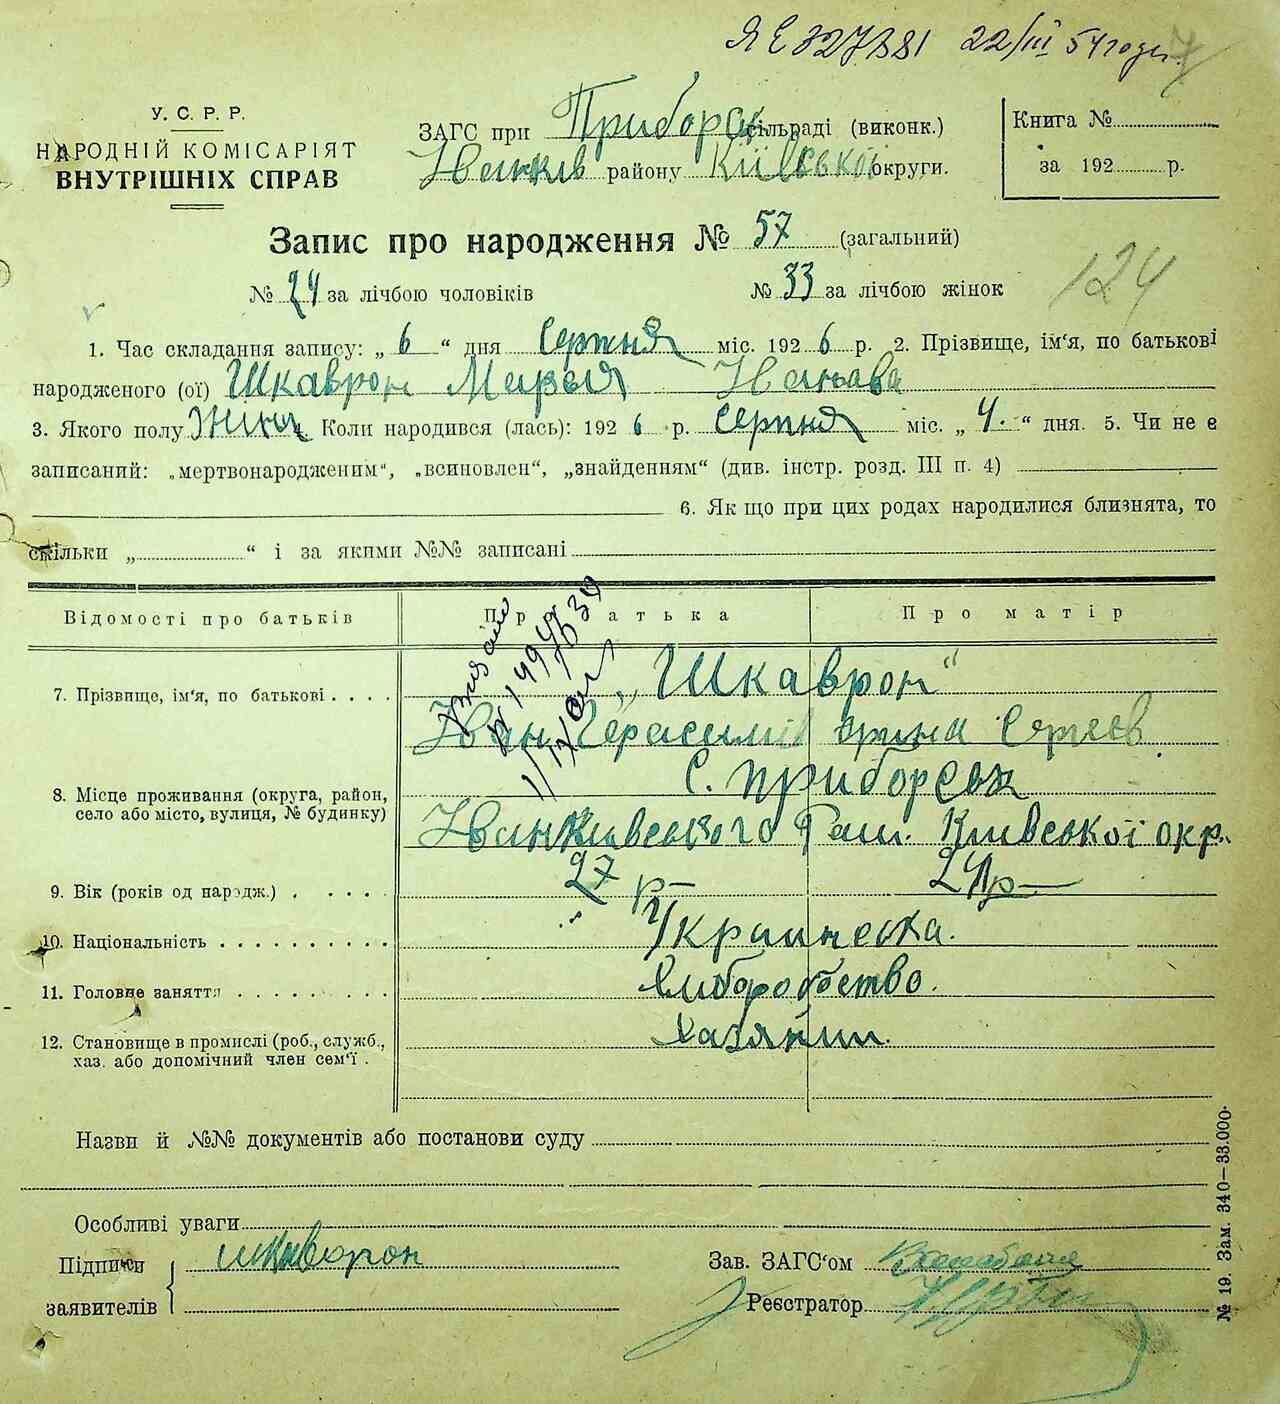 ЯЄ 327881 22/III 54 годы
У. С. Р. Р.
НАРОДНІЙ КОМІСАРІЯТ
ВНУТРІШНІХ СПРАВ
ЗАГС при Приборск сільраді (виконк.)
Іванків району Київської округи.
Книга №
за 192 р.
Запис про народження № 57 (загальний)
№ 24 за лічбою чоловіків № 33 за лічбою жінок
124
1. Час складання запису: „ 6 “ дня Серпня міс. 192 6 р. 2. Прізвище, ім‘я, по батькові
народженого (ої) Шкаврон Марья Іванава
3. Якого полу Жіноч. Коли народився (лась): 192 6 р. серпня міс. „ 4. “ дня. 5. Чи не є
записаний: „мертвонародженим“, „всиновлен“, „знайденням“ (див. інстр. розд. III п. 4)
6. Як що при цих родах народилися близнята, то
скільки „ “ і за якими №№ записані
Відомості про батьків Пр атька Про матір
7. Прізвище, ім'я, по батькові . . . . „Шкаврон“
Іван Герасимів Ірина Сергєєв
8. Місце проживання (округа, район,
село або місто, вулиця, № будинку)
С. Приборськ
Іванківського Рай. Київської окр.
9. Вік (років од нардж.) . . . . . 27 р 24 р
10. Національність . . . . . . . . . . Українська.
11. Головне заняття . . . . . . . . . Хліборобство.
12. Становище в промислі (роб., служб.,
хаз. або допомічний член сем‘ї .
Хазяїни.
Назви й №№ документів або постанови суду
Особливі уваги
Підписи
заявителів
Шкаворон
Зав. ЗАГС‘ом
Реєстратор
№ 19. Зам. 340—33.000.